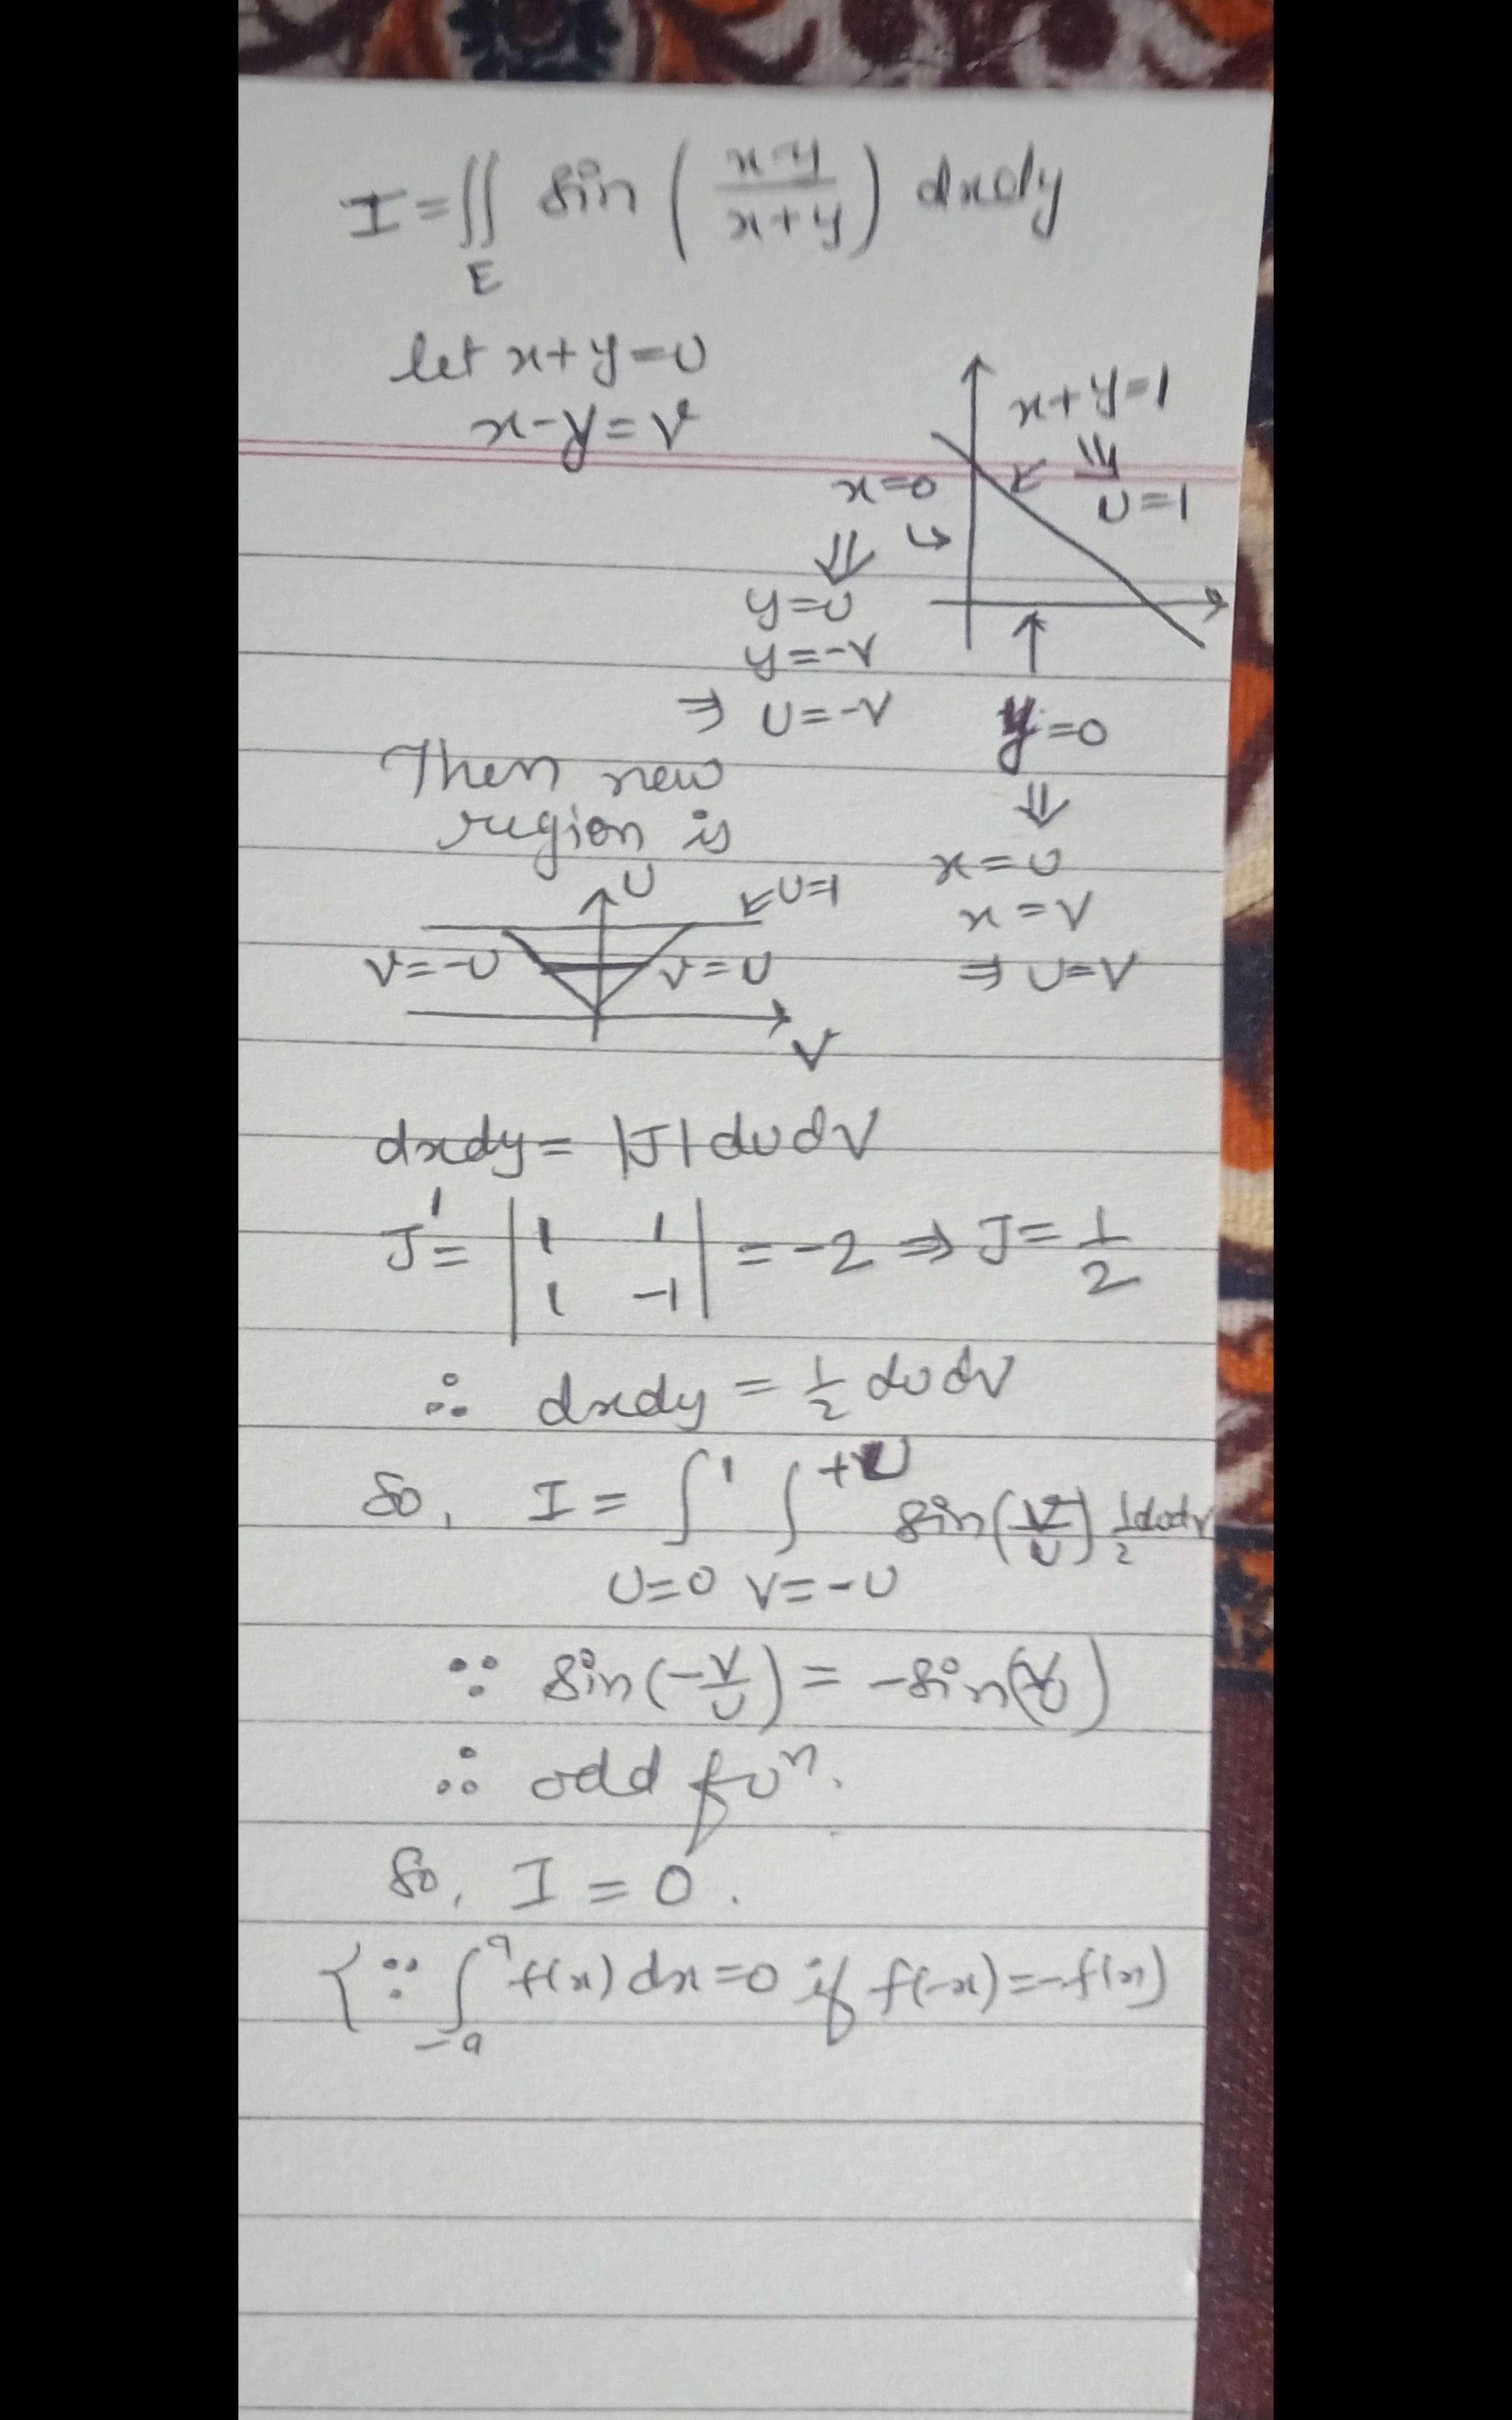 I = ∬_E sin ( (x-y)/(x+y) ) dxdy
let x+y=U
x-y=V
x+y=1
⇓
U=1
x=0
⇓
y=U
y=-V
⇒ U=-V
y=0
⇓
x=U
x=V
⇒ U=V
Then new
region is
U
U=1
V=-U
V=U
V
dxdy = |J| dU dV
J' = | 1 1 |
| 1 -1 | = -2 ⇒ J = 1/2
∴ dxdy = 1/2 dU dV
So, I = ∫_{U=0}^{1} ∫_{V=-U}^{+U} sin(V/U) 1/2 dU dV
∵ sin(-V/U) = -sin(V/U)
∴ odd fuⁿ.
So, I = 0.
{∵ ∫_{-a}^{a} f(x) dx=0 if f(-x)=-f(x)